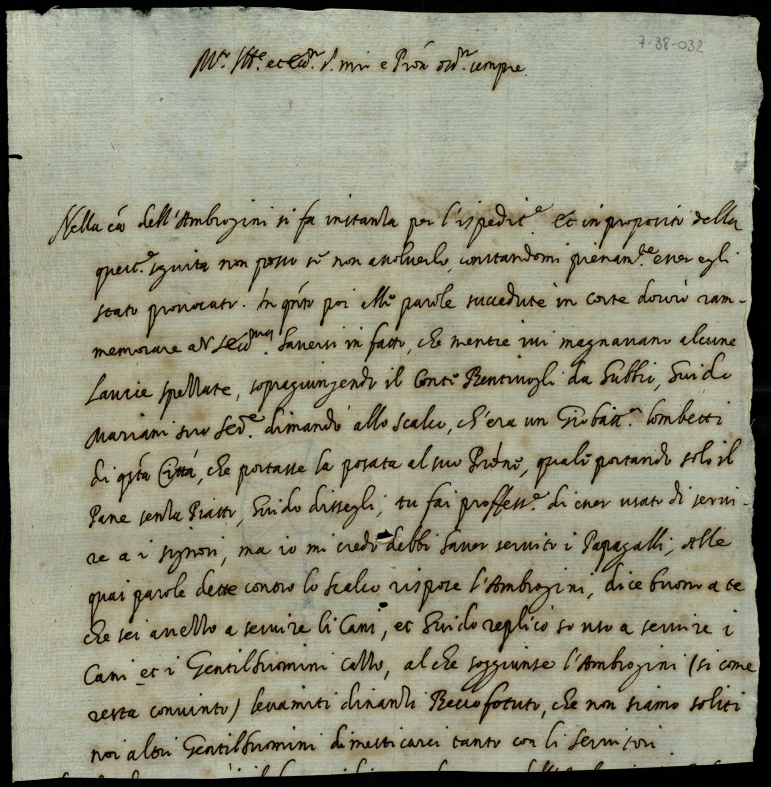 7-38-032
M.r Ill.e et Ecc.r S. mio e P.rón oss.r sempre.
Nella cã dell'Ambrogini si fa instanza per l'ispedit.e Et in proposito della
quest.e seguita non posso se non assolverlo, constandomi pienam.te esser egli
stato provocato. In q.nto poi alle parole succedute in corte dovrò ram-
memorare a V.S. haversi in fatto, che mentre ivi magnavano alcune
Lancie spellate, sopragiungendo il Conte Bentivogli da Gubbio, Guido
Mariani suo Ser.e dimandò allo scalco, ch'era un Gio batt.a Combetti
di q.sta Città, che portasse la posata al suo Prõne, quale portando solo il
Pane senza Piatto, Guido dissegli, tu fai profess.e di esser usato di servi-
re a i signori, ma io mi credo debbi haver servito i Papagalli, Alle
quai parole dette contro lo scalco rispose l'Ambrogini, dice buono a te
che sei avezzo a servire li Cani, et Guido replicò so uso a servire i
Cani et i Gentilhuomini, al che soggiunse l'Ambrogini (si come
resta convinto) levamiti dinanzi Becco fotuto, che non siamo soliti
noi altri Gentilhuomini dimesticarci tanto con li servitori